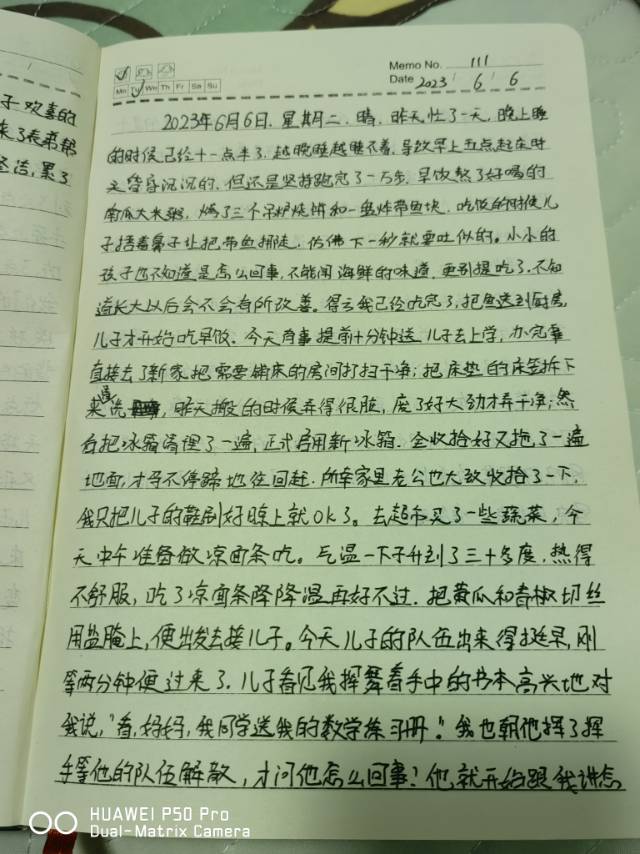 子欢喜的
来了表弟帮
圣洁,累了
Memo No. 111
Mo Tu We Th Fr Sa Su
Date 2023 / 6 / 6
2023年6月6日,星期二,晴,昨天忙了一天,晚上睡
的时候已经十一点半了,越晚睡越睡不着,导致早上五点起床时
头昏昏沉沉的,但还是坚持跑完了一万步,早饭熬了好喝的
南瓜大米粥,烤了三个吊炉烧饼和一盘炸带鱼块,吃饭的时候儿
子捂着鼻子让把带鱼挪走,仿佛下一秒就要吐似的。小小的
孩子也不知道是怎么回事,不能闻海鲜的味道,更别提吃了,不知
道长大以后会不会有所改善。得亏我已经吃完了,把鱼送到厨房,
儿子才开始吃早饭。今天有事提前十分钟送儿子去上学,办完事
直接去了新家把需要铺床的房间打扫干净;把床垫的床笠拆下
来洗,昨天搬的时候弄得很脏,废了好大劲才弄干净;然
后把冰箱清理了一遍,正式启用新冰箱。全收拾好又拖了一遍
地面,才马不停蹄地往回赶。所幸家里老公也大致收拾了一下,
我只把儿子的鞋刷好晾上就OK了。去超市买了一些蔬菜,今
天中午准备做凉面条吃。气温一下子升到了三十多度,热得
不舒服,吃了凉面条降降温再好不过。把黄瓜和青椒切丝
用盐腌上,便出发去接儿子。今天儿子的队伍出来得挺早,刚
等两分钟便过来了,儿子看见我挥舞着手中的书本高兴地对
我说,"看,妈妈,我同学送我的数学练习册!"我也朝他挥了挥
手等他的队伍解散,才问他怎么回事?他就开始跟我讲怎
HUAWEI P50 Pro
Dual-Matrix Camera